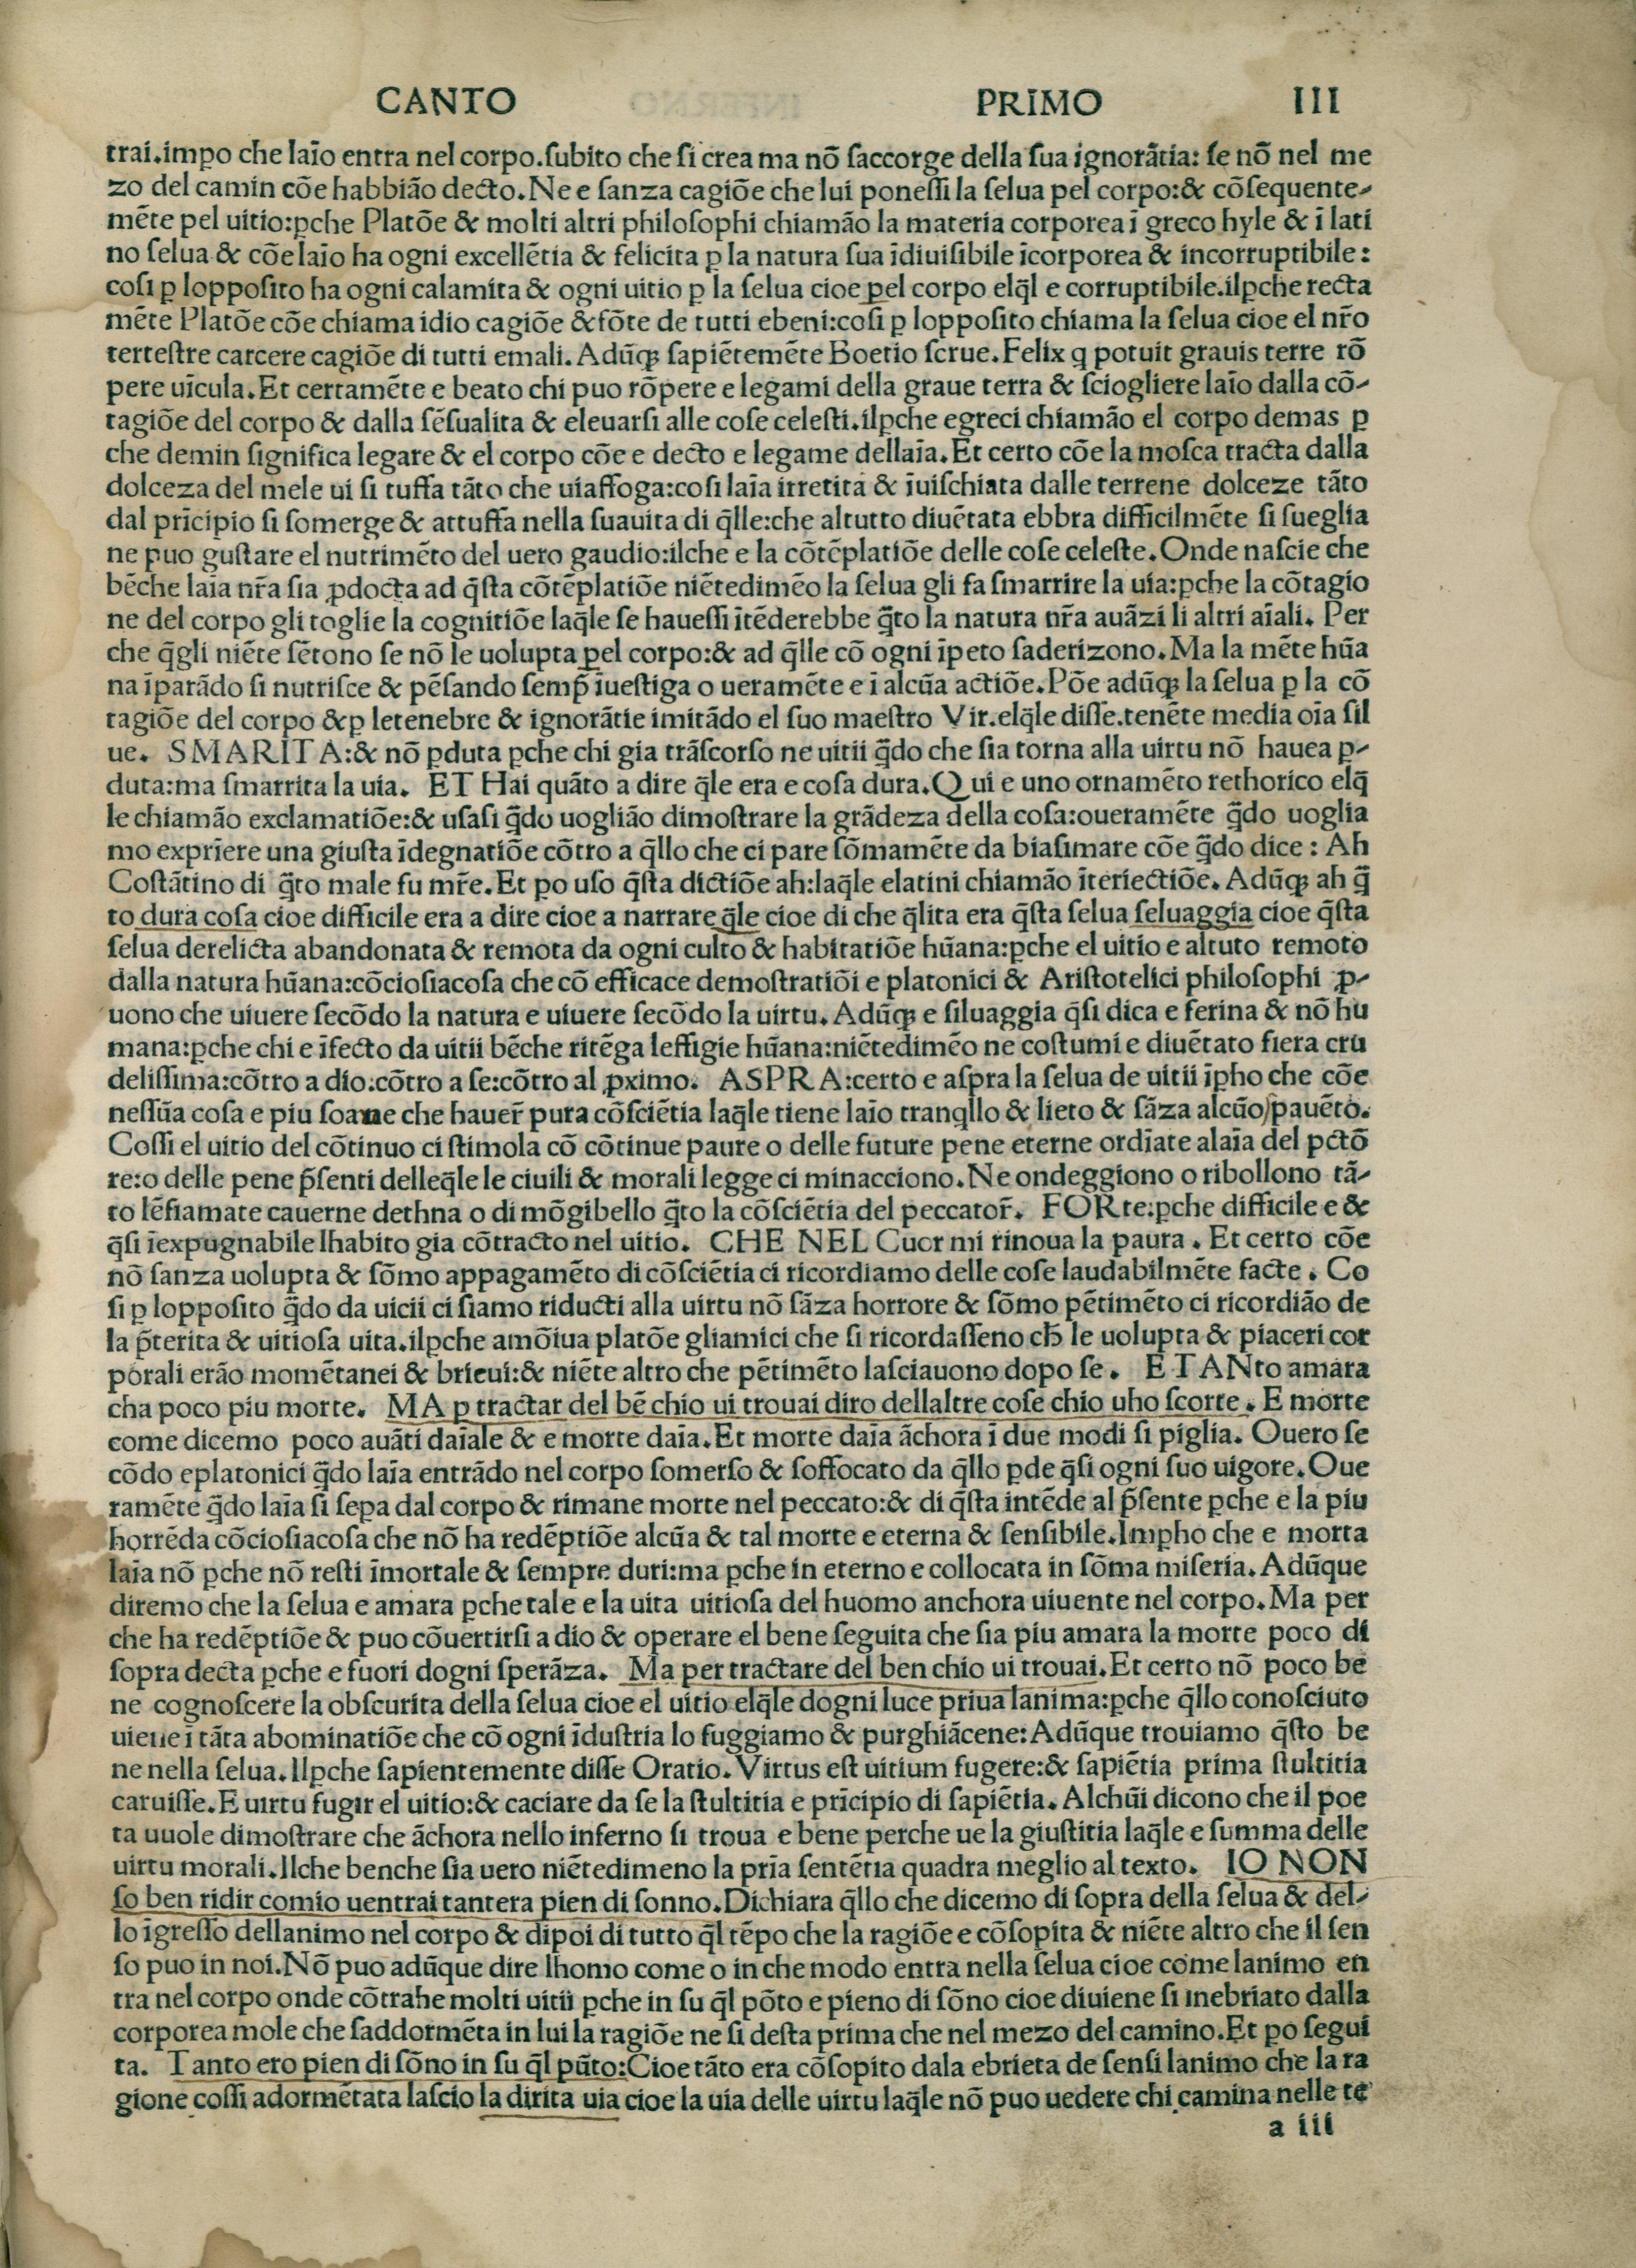 CANTO PRIMO III
trai.impo che laīo entra nel corpo.subito che si crea ma nō saccorge della sua ignorātia: se nō nel me
zo del camin cōe habbiāo decto.Ne e sanza cagiōe che lui ponessi la selua pel corpo:& cōsequente-
mēte pel uitio:ꝑche Platōe & molti altri philosophi chiamāo la materia corporea ī greco hyle & ī lati
no selua & cōe laīo ha ogni excellētia & felicita ꝑ la natura sua īdiuisibile īcorporea & incorruptibile:
cosi ꝑ lopposito ha ogni calamita & ogni uitio ꝑ la selua cioe ꝑel corpo elq̄l e corruptibile.ilꝑche recta
mēte Platōe cōe chiama idio cagiōe & fōte de tutti ebeni:cosi ꝑ lopposito chiama la selua cioe el nr̄o
terrestre carcere cagiōe di tutti emali. Adūqꝫ sapiētemēte Boetio scrue. Felix q potuit grauis terre rō
pere uīcula. Et certamēte e beato chi puo rōpere e legami della graue terra & sciogliere laīo dalla cō-
tagiōe del corpo & dalla sēsualita & eleuarsi alle cose celesti.ilꝑche egreci chiamāo el corpo demas ꝑ
che demin significa legare & el corpo cōe e decto e legame dellaīa. Et certo cōe la mosca tracta dalla
dolceza del mele ui si tuffa tāto che uiaffoga:cosi laīa irretita & īuischiata dalle terrene dolceze tāto
dal prīcipio si somerge & attuffa nella suauita di q̄lle:che altutto diuētata ebbra difficilmēte si sueglia
ne puo gustare el nutrimēto del uero gaudio:ilche e la cōtēplatiōe delle cose celeste. Onde nascie che
bēche laīa nr̄a sia ꝓdocta ad q̄sta cōtēplatiōe niētedimēo la selua gli fa smarrire la uia:ꝑche la cōtagio
ne del corpo gli toglie la cognitiōe laq̄le se hauessi ītēderebbe q̄to la natura nr̄a auāzi li altri aīali. Per
che q̄gli niēte sētono se nō le uolupta ꝑel corpo:& ad q̄lle cō ogni īpeto saderizono. Ma la mēte hūa
na īparādo si nutrisce & pēsando semp̄ īuestiga o ueramēte e ī alcūa actiōe. Pōe adūqꝫ la selua ꝑ la cō
tagiōe del corpo &ꝑ letenebre & ignorātie imitādo el suo maestro Vir.elq̄le disse.tenēte media oīa sil
ue. SMARITA:& nō ꝑduta ꝑche chi gia trāscorso ne uitii q̄do che sia torna alla uirtu nō hauea ꝑ-
duta:ma smarrita la uia. ET Hai quāto a dire q̄le era e cosa dura. Q ui e uno ornamēto rethorico elq̄
le chiamāo exclamatiōe:& usasi q̄do uogliāo dimostrare la grādeza della cosa:oueramēte q̄do uoglia
mo exprīere una giusta īdegnatiōe cōtro a q̄llo che ci pare sōmamēte da biasimare cōe q̄do dice: Ah
Costātino di q̄to male fu mr̄e. Et ꝑo uso q̄sta dictiōe ah:laq̄le elatini chiamāo īteriectiōe. Adūqꝫ ah q̄
to dura cosa cioe difficile era a dire cioe a narrare q̄le cioe di che q̄lita era q̄sta selua seluaggia cioe q̄sta
selua derelicta abandonata & remota da ogni culto & habitatiōe hūana:ꝑche el uitio e altuto remoto
dalla natura hūana:cōciosiacosa che cō efficace demostratiōi e platonici & Aristotelici philosophi ꝓ-
uono che uiuere secōdo la natura e uiuere secōdo la uirtu. Adūqꝫ e siluaggia q̄si dica e ferina & nō hu
mana:ꝑche chi e īfecto da uitii bēche ritēga leffigie hūana:niētedimēo ne costumi e diuētato fiera cru
delissima:cōtro a dio:cōtro a se:cōtro al ꝓximo. ASPRA:certo e aspra la selua de uitii īꝑho che cōe
nessūa cosa e piu soaue che hauer̄ pura cōsciētia laq̄le tiene laīo tranqllo & lieto & sāza alcūo pauēto.
Cossi el uitio del cōtinuo ci stimola cō cōtinue paure o delle future pene eterne ordīate alaīa del pctō
re:o delle pene p̄senti delleq̄le le ciuili & morali legge ci minacciono. Ne ondeggiono o ribollono tā-
to lēfiamate cauerne dethna o di mōgibello q̄to la cōsciētia del peccator̄. FORte:ꝑche difficile e &
q̄si īexpugnabile lhabito gia cōtracto nel uitio. CHE NEL Cuor mi rinoua la paura. Et certo cōe
nō sanza uolupta & sōmo appagamēto di cōsciētia ci ricordiamo delle cose laudabilmēte facte. Co
si ꝑ lopposito q̄do da uicii ci siamo riducti alla uirtu nō sāza horrore & sōmo pētimēto ci ricordiāo de
la p̄terita & uitiosa uita.ilꝑche amōiua platōe gliamici che si ricordasseno ch̄ le uolupta & piaceri cor
porali erāo momētanei & brieui:& niēte altro che pētimēto lasciauono dopo se. E TANto amara
cha poco piu morte. MA ꝑ tractar del bē chio ui trouai diro dellaltre cose chio uho scorte. E morte
come dicemo poco auāti daīale & e morte daīa. Et morte daīa āchora ī due modi si piglia. Ouero se
cōdo eplatonici q̄do laīa entrādo nel corpo somerso & soffocato da q̄llo ꝑde q̄si ogni suo uigore. Oue
ramēte q̄do laīa si seꝑa dal corpo & rimane morte nel peccato:& di q̄sta intēde al p̄sente ꝑche e la piu
horrēda cōciosiacosa che nō ha redēptiōe alcūa & tal morte e eterna & sensibile. Imꝑho che e morta
laīa nō ꝑche nō resti īmortale & sempre duri:ma ꝑche in eterno e collocata in sōma miseria. Adūque
diremo che la selua e amara ꝑche tale e la uita uitiosa del huomo anchora uiuente nel corpo. Ma per
che ha redēptiōe & puo cōuertirsi a dio & operare el bene seguita che sia piu amara la morte poco di
sopra decta ꝑche e fuori dogni sperāza. Ma per tractare del ben chio ui trouai. Et certo nō poco be
ne cognoscere la obscurita della selua cioe el uitio elq̄le dogni luce priua lanima:ꝑche q̄llo conosciuto
uiene ī tāta abominatiōe che cō ogni īdustria lo fuggiamo & purghiācene: Adūque trouiamo q̄sto be
ne nella selua. Ilꝑche sapientemente disse Oratio. Virtus est uitium fugere:& sapiētia prima stultitia
caruisse. E uirtu fugir el uitio:& caciare da se la stultitia e prīcipio di sapiētia. Alchūi dicono che il poe
ta uuole dimostrare che āchora nello inferno si troua e bene perche ue la giustitia laq̄le e summa delle
uirtu morali. Ilche benche sia uero niētedimeno la prīa sentētia quadra meglio al texto. IO NON
so ben ridir comio uentrai tantera pien di sonno. Dichiara q̄llo che dicemo di sopra della selua & del-
lo īgresso dellanimo nel corpo & dipoi di tutto q̄l tēpo che la ragiōe e cōsopita & niēte altro che il sen
so puo in noi. Nō puo adūque dire lhomo come o in che modo entra nella selua cioe come lanimo en
tra nel corpo onde cōtrahe molti uitii ꝑche in su q̄l pōto e pieno di sōno cioe diuiene si inebriato dalla
corporea mole che saddormēta in lui la ragiōe ne si desta prima che nel mezo del camino. Et ꝑo segui
ta. Tanto ero pien di sōno in su q̄l pūto: Cioe tāto era cōsopito dala ebrieta de sensi lanimo che la ra
gione cossi adormētata lascio la dirita uia cioe la uia delle uirtu laq̄le nō puo uedere chi camina nelle te
a iii